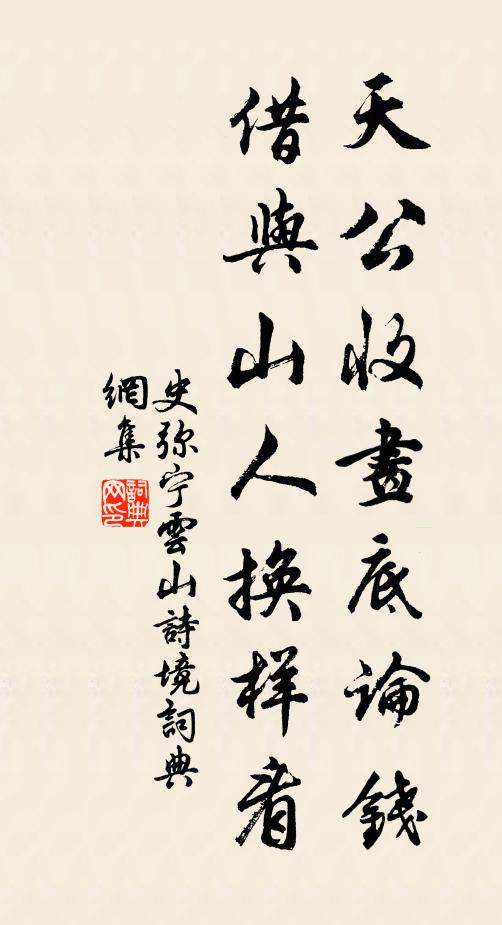 天公收畫底論錢
借與山人換样看
史弥宁雲山詩境詞典
網集
詞典
网印